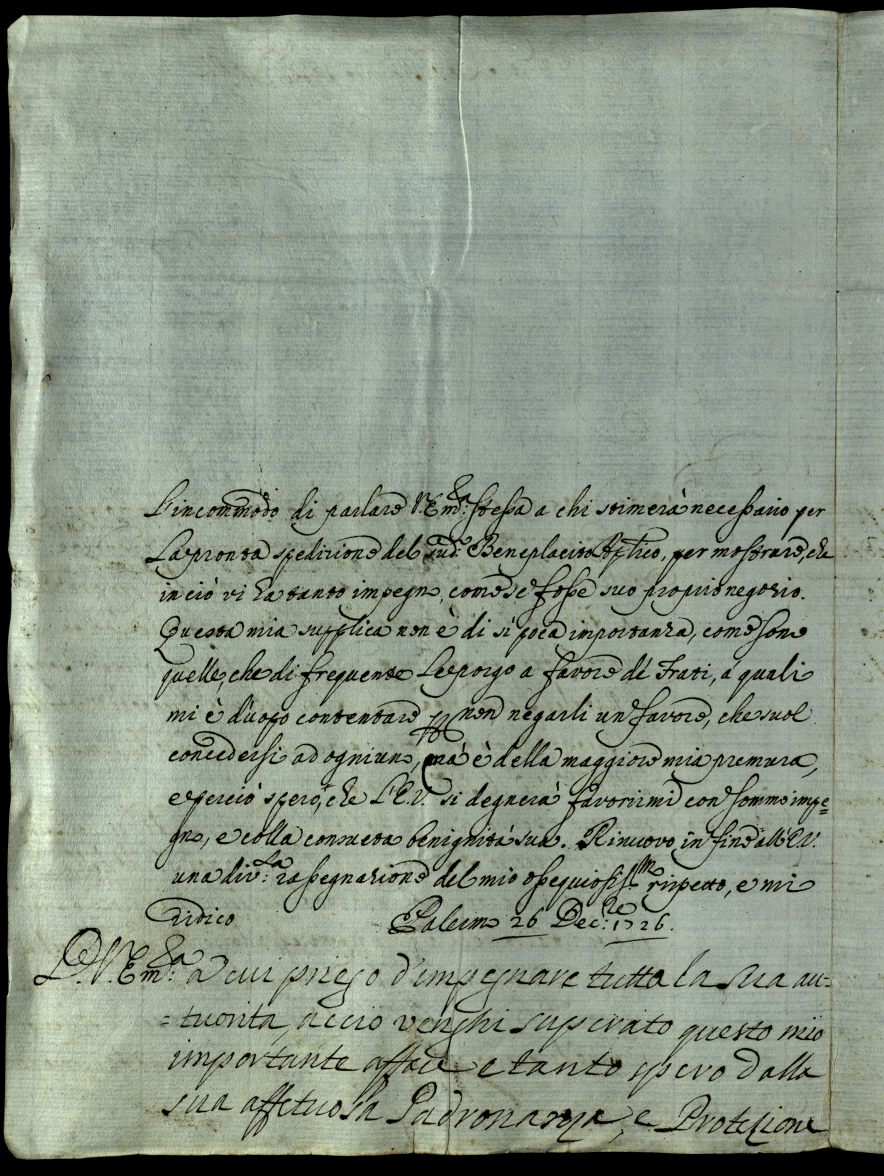 L'incommodo di parlare V. Em.za stessa a chi stimerà necessario per
La pronta spedizione del sud.o Beneplacito Ap.lico, per mostrare, che
in ciò vi ha tanto impegno, come se fosse suo proprio negozio.
Questa mia supplica non è di sì poca importanza, come sono
quelle, che di frequente Le porgo a favore de' Frati, a' quali
mi è d'uopo contentare p non negarli un favore, che suol
concedersi ad ogniuno, mà è della maggiore mia premura,
e perciò spero, che L'E.V. si degnerà favorirmi con sommo impe=
gno, e colla consueta benignità sua. Rinuovo in fine all'E.V.
una div.ta rassegnazione del mio ossequiosiss.mo rispetto, e mi
ridico Palermo 26 Dec.re 1726.
D. V. Em.za a cui priego d'impegnare tutta la sua au=
=tuorita, accio venghi superato questo mio
importante affare e tanto spero dalla
sua affetuosa Padronanza, e Protezione